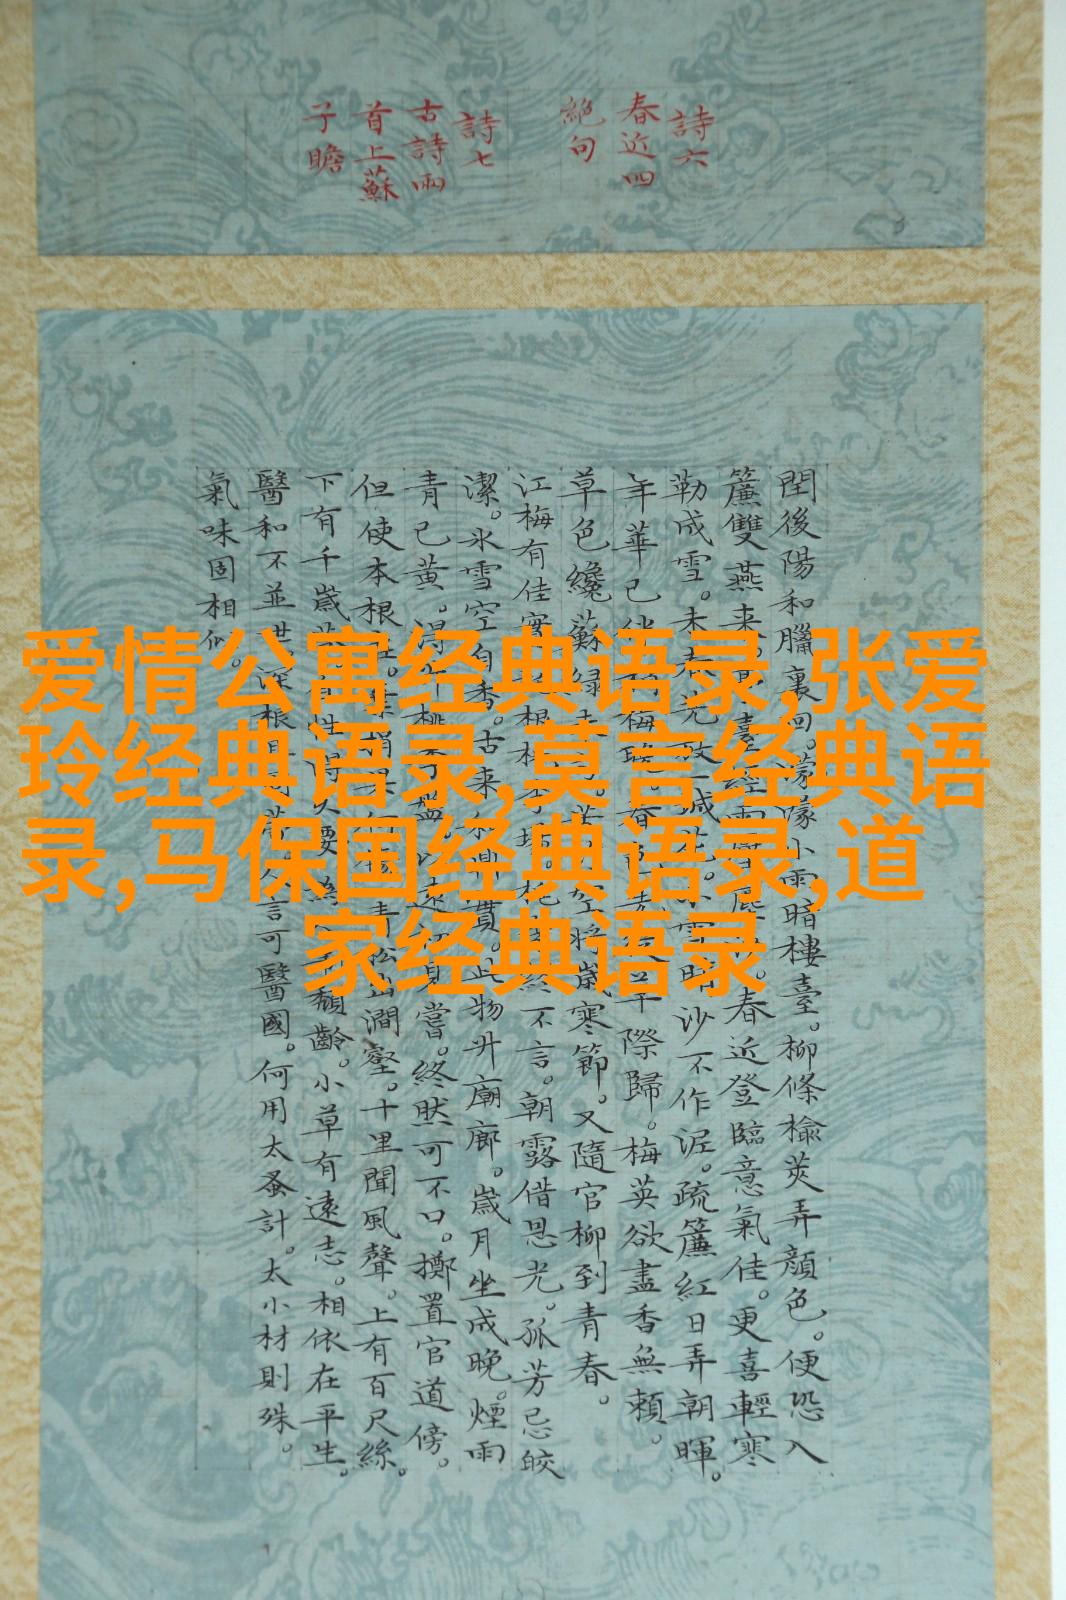 詩六
春近四
絕句
詩七
古詩兩
首上蘇
子瞻
閏後陽和臘裏回。濛濛小雨暗樓臺。柳條榆莢弄顏色。便恐入
簾雙燕來。臺經雨。春近登臨意氣佳。更喜輕寒
勒成雪。未春光。沙不作泥。疏簾紅日弄朝暉。
年華已梅。際歸。梅英欲盡香無賴。
草色纔蘇綠。空將歲寒節。又隨官柳到青春。
江梅有佳實。根桃李場。桃不言。朝露借恩光。孤芳忌皎
潔。冰雪空自香。古來和鼎實。此物升廟廊。歲月坐成晚。煙雨
青已黃。得升桃李盤。以遠初見嘗。終然可不口。擲置官道傍。
但使本根在。青松出澗壑。十里聞風聲。上有百尺絲。
下有千歲。性頹齡。小草有遠志。相依在平生。
醫和不並世。深根言可醫國。何用太蚤計。太小材則殊。
氣味固相似。
爱情公寓经典语录,张爱
玲经典语录,莫言经典语
录,马保国经典语录,道
家经典语录